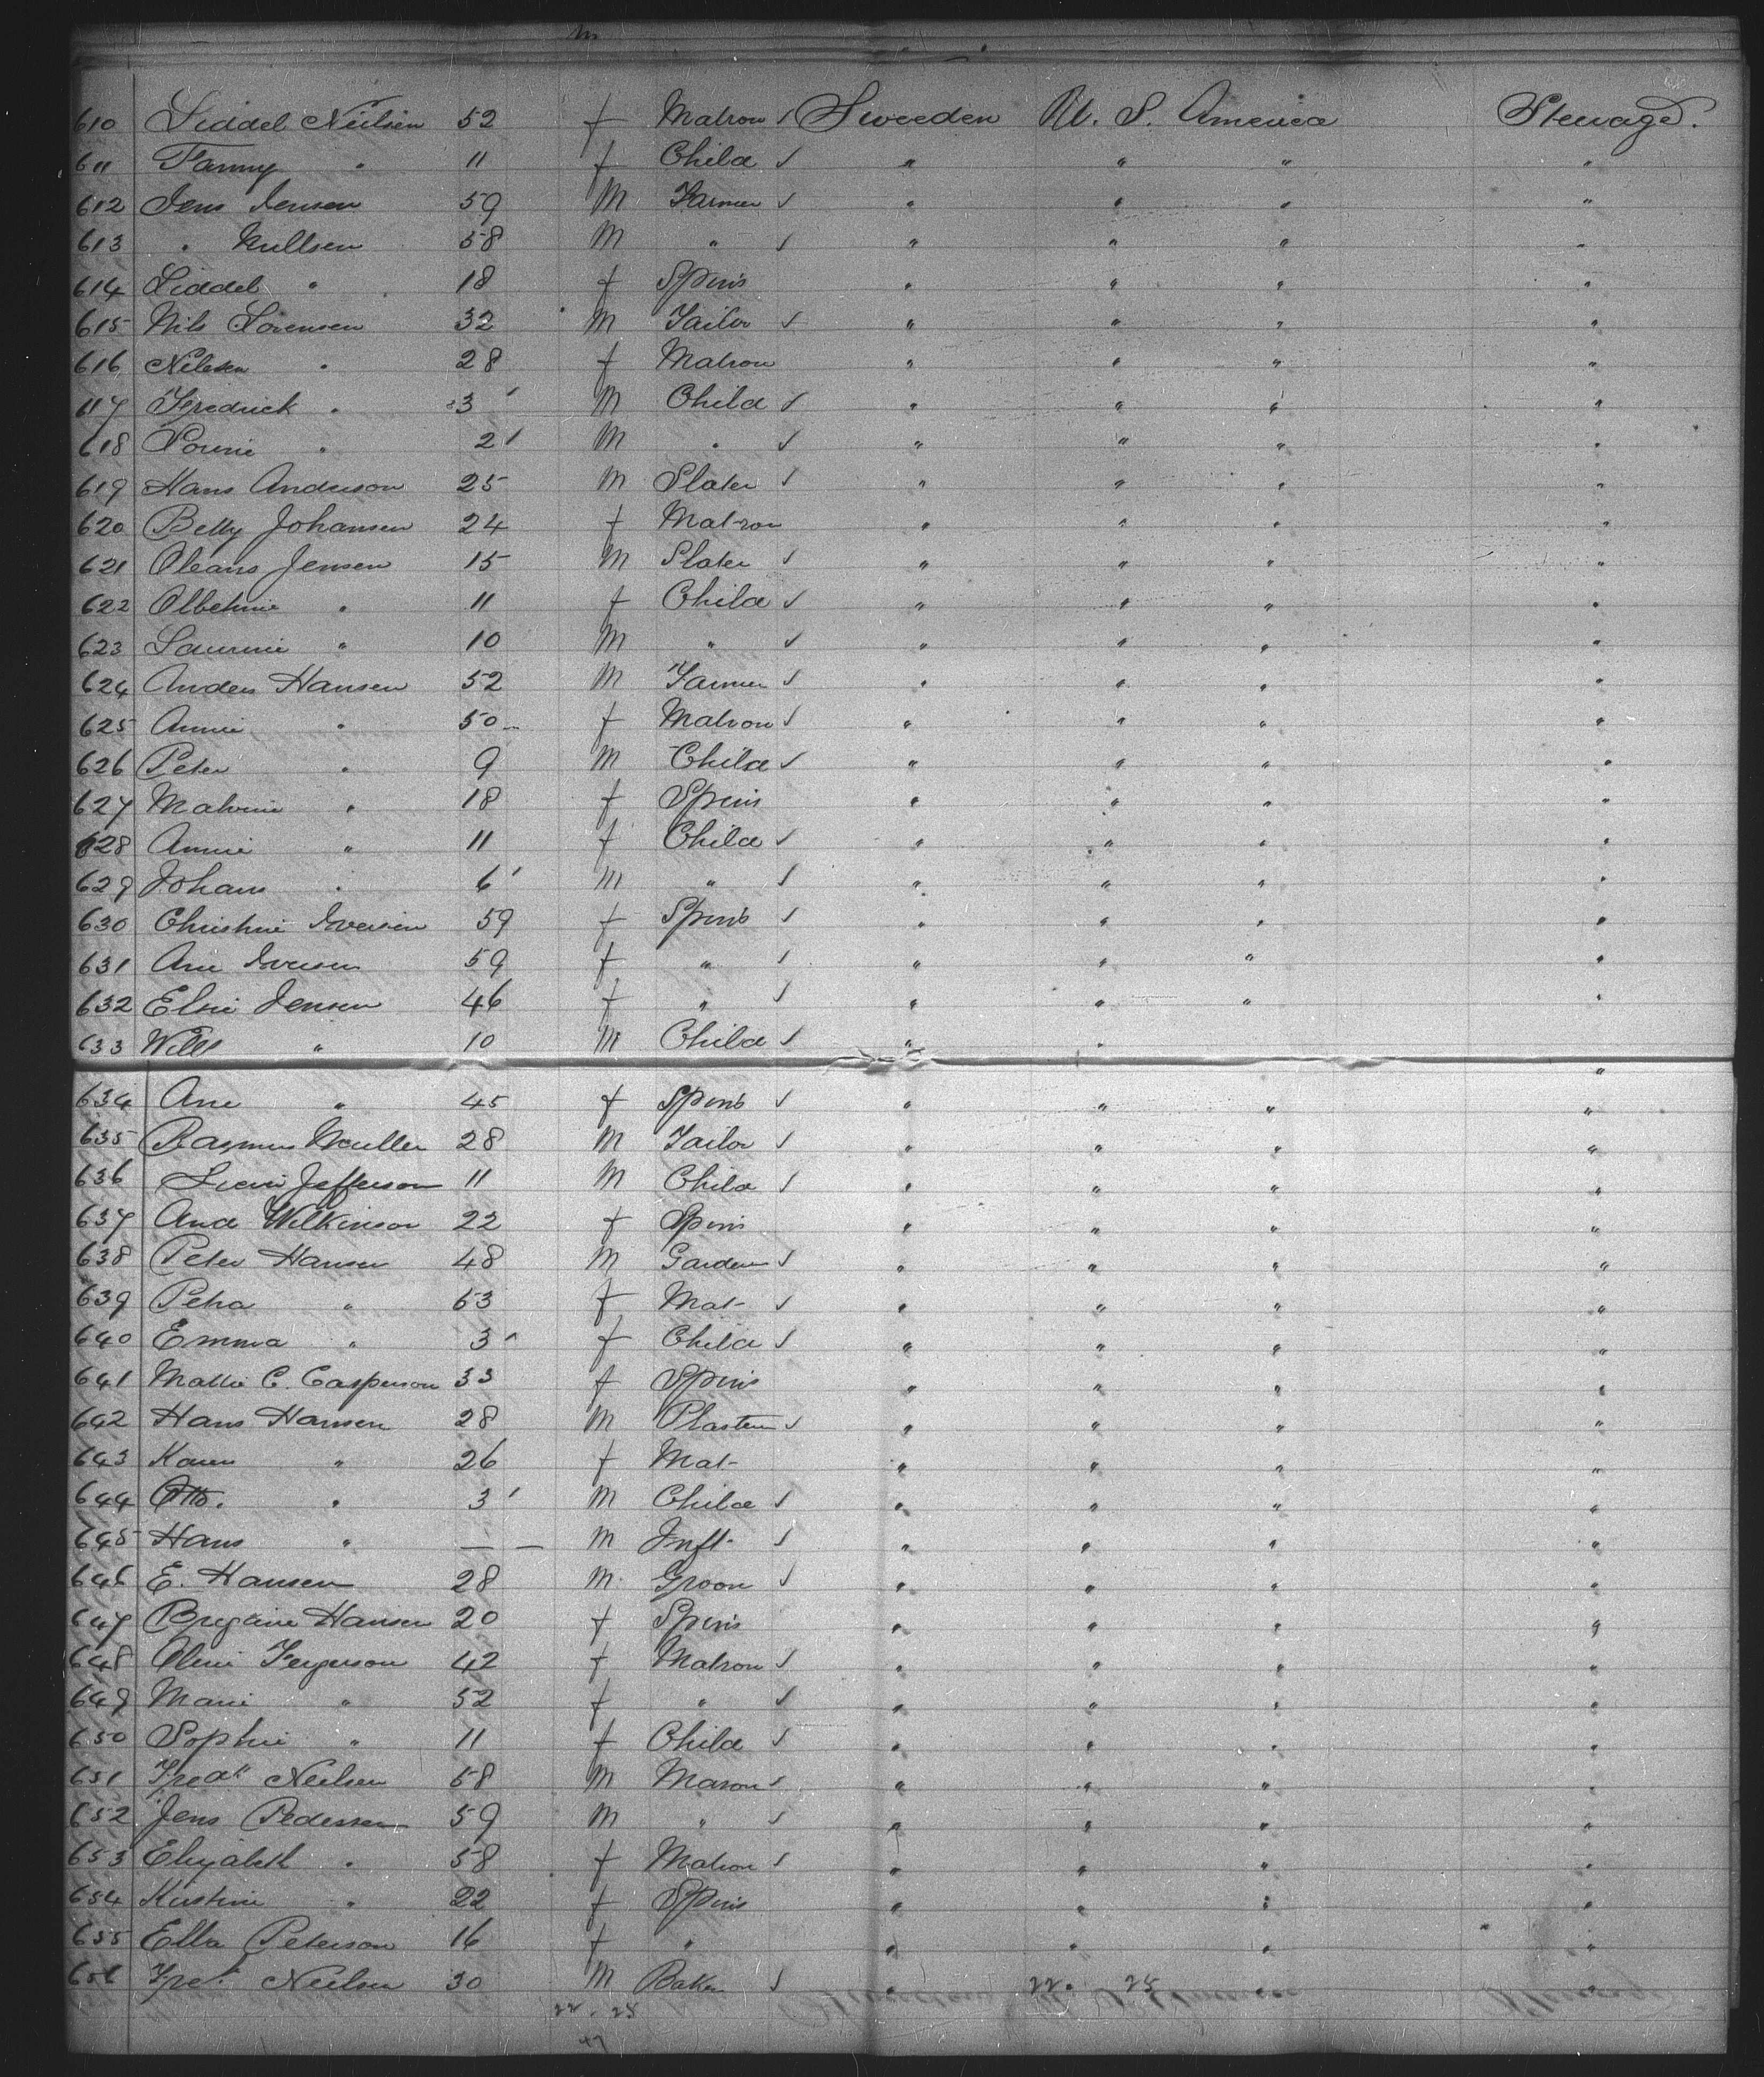 610 Siddel Neilsen 52 f Matron ✓ Sweeden U. S. America Steerage.
611 Fanny " 11 f Child ✓ " " " "
612 Jens Jensen 59 M Farmer ✓ " " " "
613 " Nullsen 58 M " ✓ " " " "
614 Siddel " 18 f Spins " " " "
615 Nils Sorensen 32 M Tailor ✓ " " " "
616 " 28 f Matron " " " "
617 Fredrick " 3 M Child ✓ " " " "
618 " 2 M " ✓ " " " "
619 Hans Anderson 25 M Slater ✓ " " " "
620 Betty Johansen 24 f Matron " " " "
621 Oleans Jensen 15 M Slater ✓ " " " "
622 " 11 f Child ✓ " " " "
623 Laurine " 10 M " ✓ " " " "
624 Anders Hansen 52 M Farmer ✓ " " " "
625 Annie " 50 f Matron ✓ " " " "
626 Peter " 9 M Child ✓ " " " "
627 Malvine " 18 f Spins " " " "
628 Annie " 11 f Child ✓ " " " "
629 Johans " 6 M " ✓ " " " "
630 Christine Iversen 59 f Spins ✓ " " " "
631 Ane Iversen 59 f " ✓ " " " "
632 Elsie Jensen 46 f " ✓ " " " "
633 Will " 10 M Child ✓ " " "
634 Ane " 45 f Spins ✓ " " " "
635 Rasmus Muller 28 M Tailor ✓ " " " "
636 Jefferson 11 M Child ✓ " " " "
637 And Wilkinson 22 f Spins " " " "
638 Peter Hansen 48 M Garden ✓ " " " "
639 Petra " 53 f Mat- ✓ " " " "
640 Emma " 3 f Child ✓ " " " "
641 Mattie C. Casperson 33 f Spins " " " "
642 Hans Hansen 28 M Plaster ✓ " " " "
643 Karen " 26 f Mat- " " " "
644 Otto. " 3 M Child ✓ " " " "
645 Hans " — — M Inft- ✓ " " " "
646 E. Hansen 28 M. Groom ✓ " " " "
647 Hansen 20 f Spins " " " "
648 Oline Ferguson 42 f Matron ✓ " " " "
649 Marie " 52 f " ✓ " " " "
650 Sophie " 11 f Child ✓ " " " "
651 Fredk Neilsen 58 M Mason ✓ " " " "
652 Jens Pedersen 59 M " ✓ " " " "
653 Elizabeth " 58 f Matron ✓ " " " "
654 Kirstine " 22 f Spins " " " "
655 Ella Peterson 16 f " " " " "
656 Fred Neilsen 30 M Baker ✓ " 22. 25 " "
22. 25
47